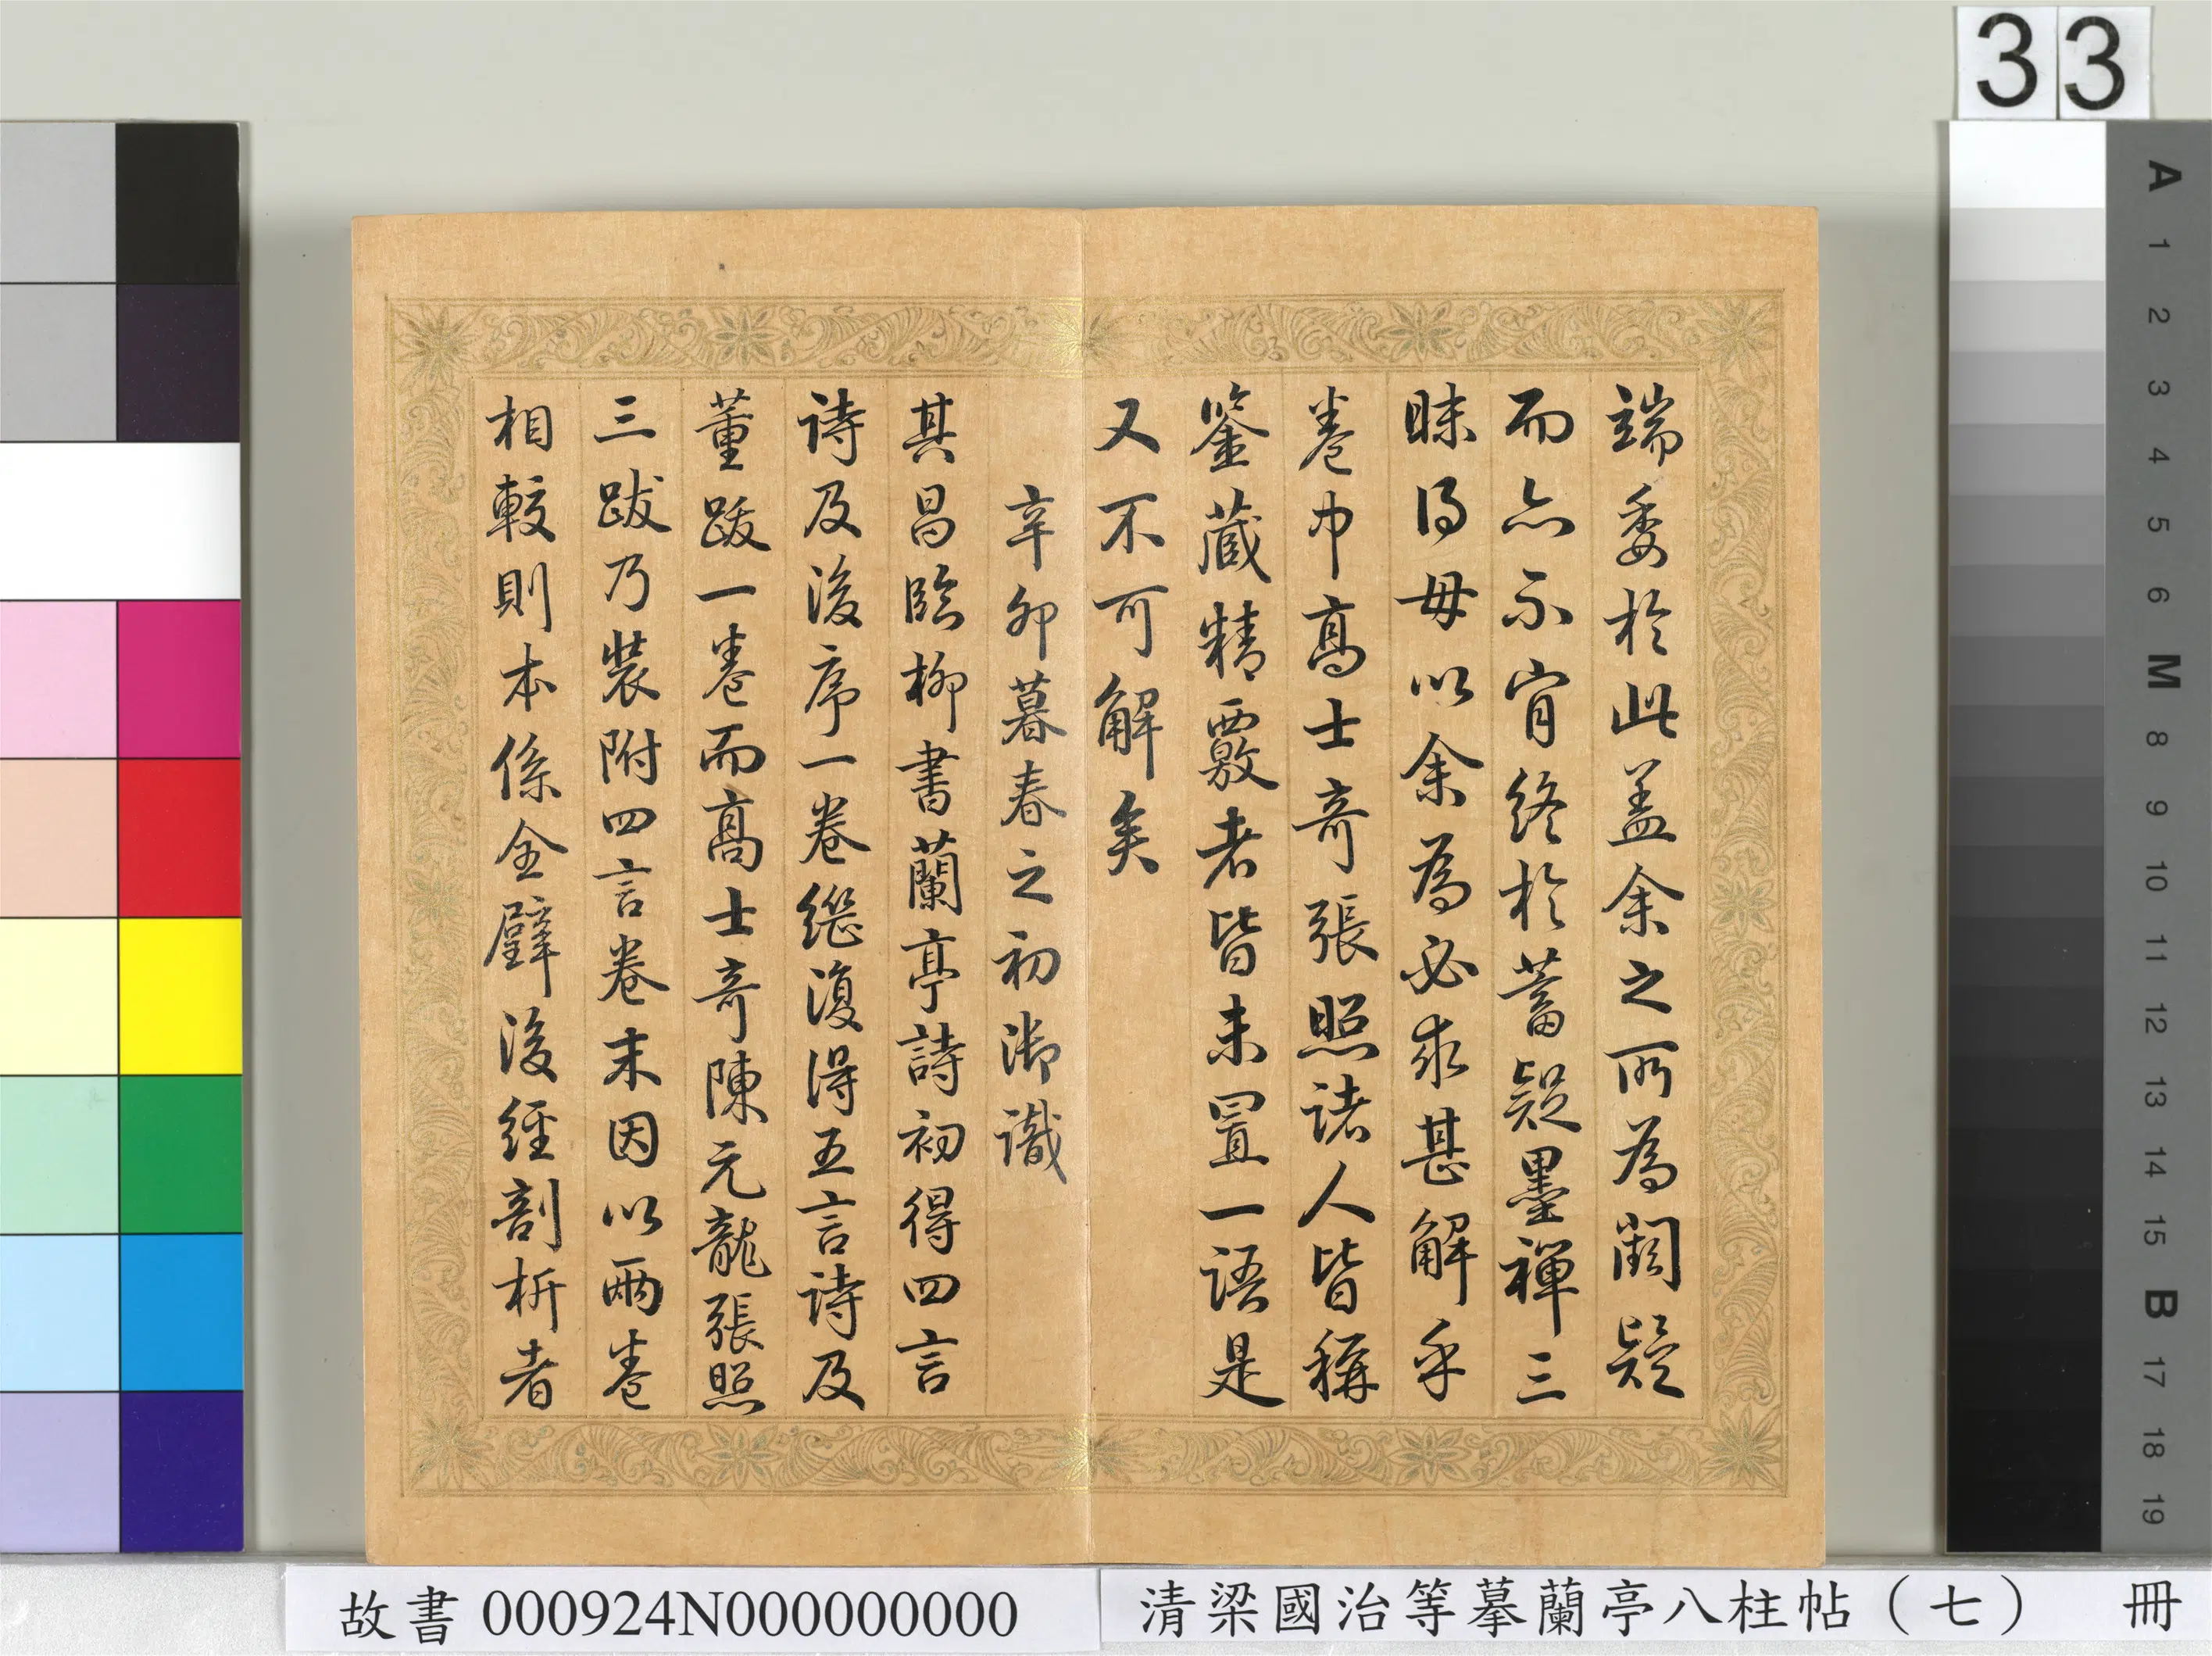 33
端委於此盖余之所為闕疑
而亦不肯終於蓄疑墨禪三
昧得毋以余為必求甚解乎
卷中高士奇張照諸人皆稱
鑒藏精覈者皆未置一語是
又不可解矣
辛卯暮春之初御識
其昌臨柳書蘭亭詩初得四言
詩及後序一卷繼復得五言詩及
董跋一卷而高士奇陳元龍張照
三跋乃裝附四言卷末因以兩卷
相較則本係全璧後經剖析者
A 1 2 3 4 5 6 M 8 9 10 11 12 13 14 15 B 17 18 19
故書 000924N000000000
清梁國治等摹蘭亭八柱帖（七） 冊